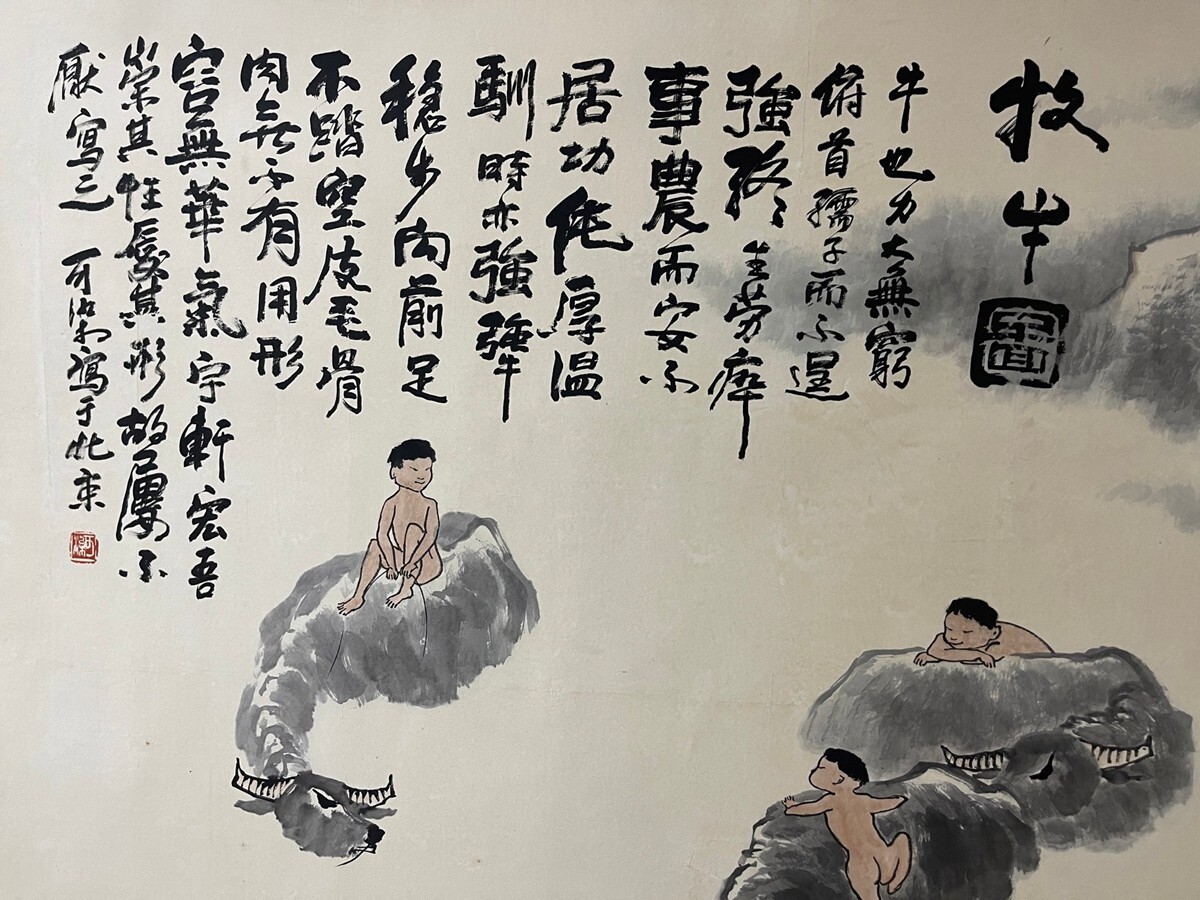 牧牛圖
牛也力大無窮
俯首孺子而不逞
強終生勞瘁
事農而安不
居功純厚溫
馴時亦強犟
穩步向前足
不踏空皮毛骨
肉無不有用形
容無華氣宇軒宏吾
崇其性愛其形故屢不
厭寫之 可染寫于北京